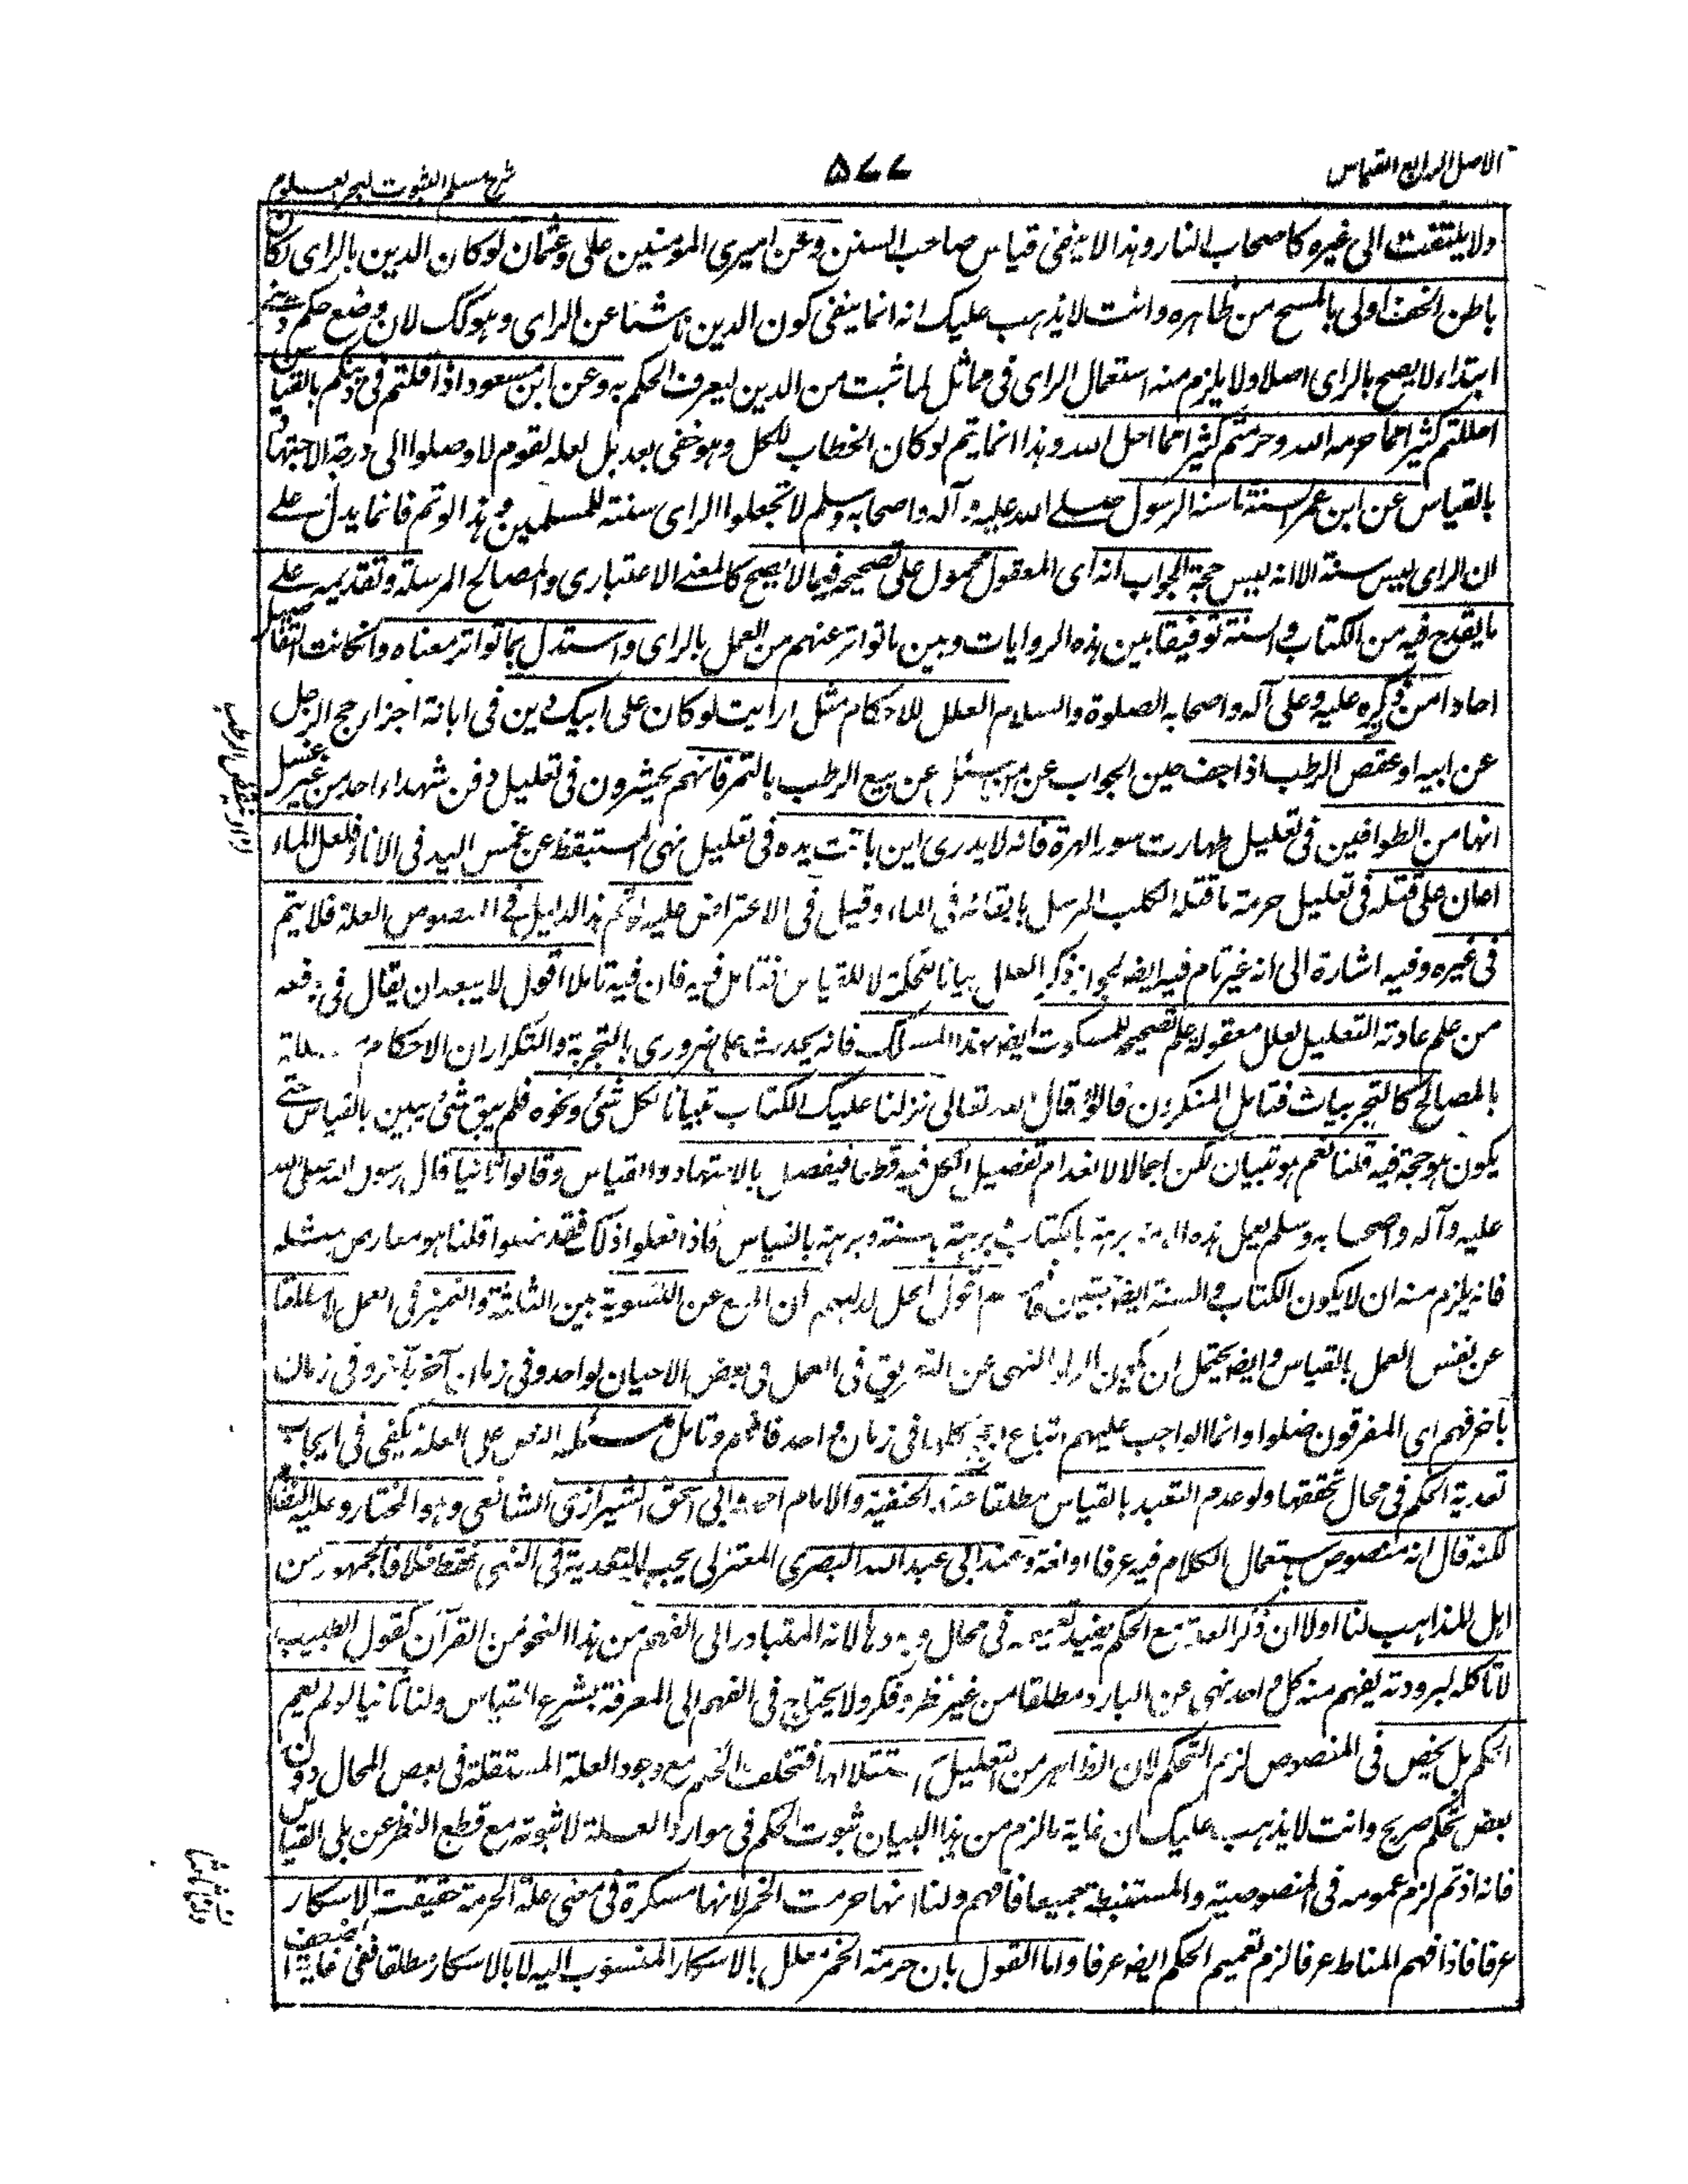 الاصل الرابع القياس
۵۷۷
شرح مسلم الثبوت لبحر العلوم
ولا يلتفت الى غيره كاصحاب النار وهذا لا ينفى قياس صاحب السنن وعن اميرى المؤمنين على وعثمان لو كان الدين بالراى لكان
باطن الخف اولى بالمسح من ظاهره وانت لا يذهب عليك انه انما ينفى كون الدين ناشئا عن الراى وهو كك لان وضع حكم دينى
ابتداء لا يصح بالراى اصلا ولا يلزم منه استعمال الراى فى مماثل لما ثبت من الدين ليعرف الحكم به وعن ابن مسعود اذا قلتم فى دينكم بالقياس
احللتم كثيرا مما حرمه الله وحرمتم كثيرا مما احل الله وهذا انما يتم لو كان الخطاب للكل وهو خفى بعد بل لعله لقوم لا وصلوا الى درجة الاجتهاد
بالقياس عن ابن عمر السنة ما سنه الرسول صلے الله عليه وآله واصحابه وسلم لا تجعلوا الراى سنته للمسلمين وهذا لو تم فانما يدل علے
ان الراى ليس سنة الا انه ليس حجة الجواب انه اى المعقول محمول على تصحيحه فيما لا يصح كالمعنے الاعتبارى والمصالح المرسلة وتقديمه علے
ما يقدح فيه من الكتاب والسنة توفيقا بين هذه الروايات وبين ما تواتر عنهم من العمل بالراى واستدل بما تواتر معناه وانكانت التفاصيل
احادا من ذكره عليه وعلى آله واصحابه الصلوة والسلام العلل للاحكام مثل ارايت لو كان على ابيك دين فى ابانة اجزاء حج الرجل
عن ابيه او ينقص الرطب اذا جف حين الجواب عن من يسئل عن بيع الرطب بالتمر فانهم يحشرون فى تعليل دفن شهداء احد من غير غسل
انها من الطوافين فى تعليل طهارت سور الهرة فانه لا يدرى اين باتت يده فى تعليل نهى المستيقظ عن غمس اليد فى الاناء فلعل الماء
اعان على قتله فى تعليل حرمة ما قتله الكلب المرسل بايقائه فى الماء وقيل فى الاعتراض عليه لو تم هذا الدليل فے المنصوص العلة فلا يتم
فى غيره وفيه اشارة الى انه غير تام فيه ايضه لجواز ذكر العلل بيانا للحكمة لا للقياس فتامل فيه فان فيه تاملا اقول لا يبعد ان يقال فى دفعه
من علم عادته التعليل لعلل معقولة علم تصحيحه للمسكوت ايضه بهذا المسلك فانه يحدث علم ضرورى بالتجربة والتكرار ان الاحكام معللة
بالمصالح كالتجربيات فتامل المنكرون قالوا قال الله تعالى نزلنا عليك الكتاب تبيانا لكل شئ ونحوه فلم يبق شئ يبين بالقياس حتے
يكون هو حجة فيه قلنا نعم هو تبيان لكن اجمالا لانعدام تفصيل الكل فيه قطعا فيفصل بالاجتهاد والقياس وقالوا ثانيا قال رسول الله صلى الله
عليه وآله واصحابه وسلم يعمل هذه الامة برهة بالكتاب وبرهة بالسنة وبرهة بالقياس فاذا فعلوا ذلك فقد ضلوا قلنا هو معارض بمثله
فانه يلزم منه ان لا يكون الكتاب والسنة ايضه حجتين اقول لعل المنع عن التسوية بين الثلثة والتميز فى العمل لا مطلقا
عن نفس العمل بالقياس وايضه يحتمل ان يكون المراد النهى عن التفريق فى العمل فى بعض الاحيان لواحد وفى زمان آخر بآخر وفى زمان
بآخر فهم اى المفرقون ضلوا وانما الواجب عليهم اتباع الحجج كلها فى زمان واحد فافهم وتامل مسئله النص على العلة يكفى فى ايجاب
تعدية الحكم فى محال تحققها ولو عدم التعبد بالقياس مطلقا عند الحنفية والامام احمد وابى اسحق الشيرازى الشافعى وهو المختار وعليه النظام
لكنه قال انه منصوص باستعمال الكلام فيه عرفا او لغة وعند ابى عبدالله البصرى المعتزلى يجب التعدية فى النهى فقط خلافا لجمهور من
اهل المذاهب لنا اولا ان ذكر العلة مع الحكم يفيد تعميمه فى محال وجودها لانه المتبادر الى الفهم من هذا النحو من القرآن كقول الطبيب
لا تاكله لبرودته يفهم منه كل واحد نهى عن البارد مطلقا من غير نظر وفكر ولا يحتاج فى الفهم الى المعرفة بشرع القياس ولنا ثانيا لو لم يعم
الحكم بل يخص فى المنصوص لزم التحكم لان الظاهر من التعليل استقلالها فتخلف الحكم مع وجود العلة المستقلة فى بعض المحال دون
بعض تحكم صريح وانت لا يذهب عليك ان غاية ما لزم من هذا البيان ثبوت الحكم فى موارد العلة لا ثبوته مع قطع النظر عن بلى القياس
فانه اذ تم لزم عمومه فى المنصوصية والمستنبطة جميعا فافهم ولنا انها حرمت الخمر لانها مسكرة فى معنى علة الحرمة حقيقت الاسكار
عرفا فاذا فهم المناط عرفا لزم تعميم الحكم ايضه عرفا واما القول بان حرمة الخمر معلل بالاسكار المنسوب اليه لا بالاسكار مطلقا ففى غاية الضعف